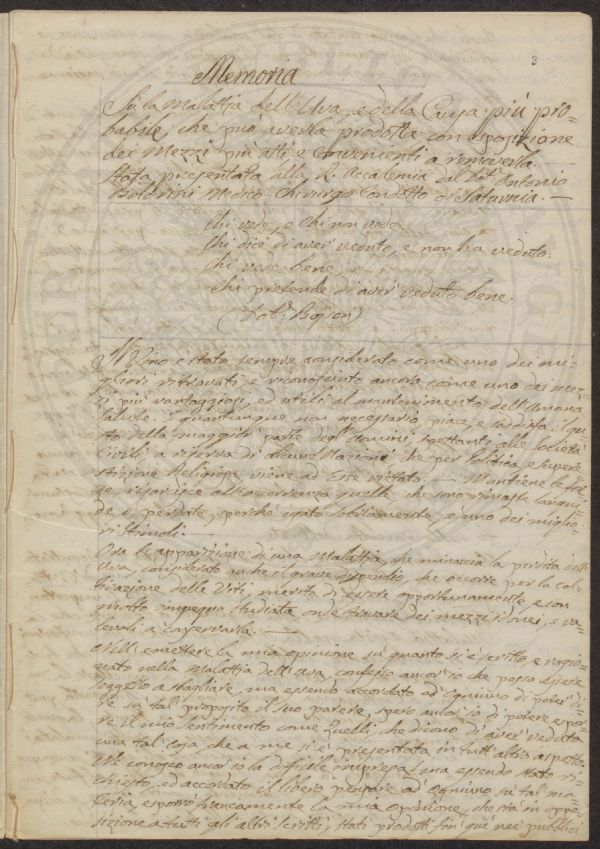 2
Memoria
Su la Malattia dell'Uva, e della Causa più pro=
babile, che può averla prodotta con esposizione
dei Mezzi più atti, e convenienti a removerla.
Stata presentata alla R. Accademia dal Dot. Antonio
Medico Chirurgo Condotto di Saturnia. —
Chi vede, e Chi non vede.
Chi dice di aver veduto, e non ha veduto:
Chi vede bene, e
Chi pretende di aver veduto bene.
Il Vino è stato sempre considerato come uno dei mi=
gliori ritrovati, e riconosciuto ancora come uno dei mez=
zi più vantaggiosi, ed utili al mantenimento dell'Umana
salute. quantunque non necessario, piace, e soddisfa il gu=
sto della maggior parte degl'Uomini spettanti alle Società
Civili a riserva di alcune Nazioni, che per Politica, e Super=
stizione Religiosa viene ad Esse vietato. — Mantiene le for=
ze, all'occorrenza quelle che sono rimaste langui=
de e perdute, perché usato sobriamente, è uno dei miglio=
ri stimoli.
Ora l'apparizione di una Malattia, che minaccia la perdita dell'
Uva, considerato anche il grave dispendio, che occorre per la col=
tivazione delle Viti, merita di essere opportunamente, e con
molto impegno studiata, onde trovare dei mezzi idonei, e va=
levoli a conservarla. —
Nell'emettere la mia opinione su quanto si è scritto, e ragio=
nato nella Malattia dell'Uva, confesso ancor'io che posso essere
soggetto a sbagliare, ma essendo accordato ad Ognuno di poter di=
re su tal proposito il suo parere, spero ancor'io di potere espor=
re il mio sentimento come Quelli, che dicono di aver veduta
una tal cosa, che a me si è presentata in tutt'altro aspetto.
conosco ancor'io la difficile impresa; ma essendo stato ri=
chiesto, ed accordato il libero pensare ad Ognuno su tal ma=
teria, esporrò francamente la mia opinione, che sta in oppo=
sizione a tutti gli altri scritti, stati prodotti fin qui nei pubblici